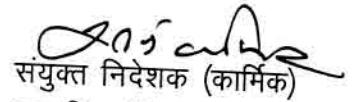 संयुक्त निदेशक (कार्मिक)